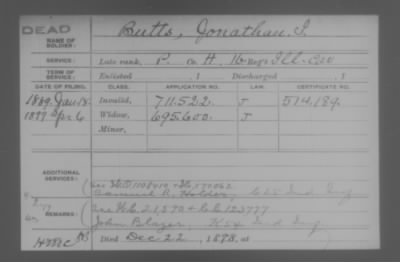 DEAD
NAME OF SOLDIER: Butts, Jonathan J.
SERVICE: Late rank, P. Co. H, 16 Reg't Ill. Cav
TERM OF SERVICE: Enlisted , 1 Discharged , 1
DATE OF FILING. CLASS. APPLICATION NO. LAW. CERTIFICATE NO.
1889. Jan. 18. Invalid, 711.522. J 574.189.
1899 Apr 6 Widow, 695.600. J
Minor,
ADDITIONAL SERVICES:
1108419 570062
Samuel R. Holder, Ind Inf
REMARKS: 21,590 123777
John Blazer, K 54 Ind Inf
Died Dec 22, 1898, at